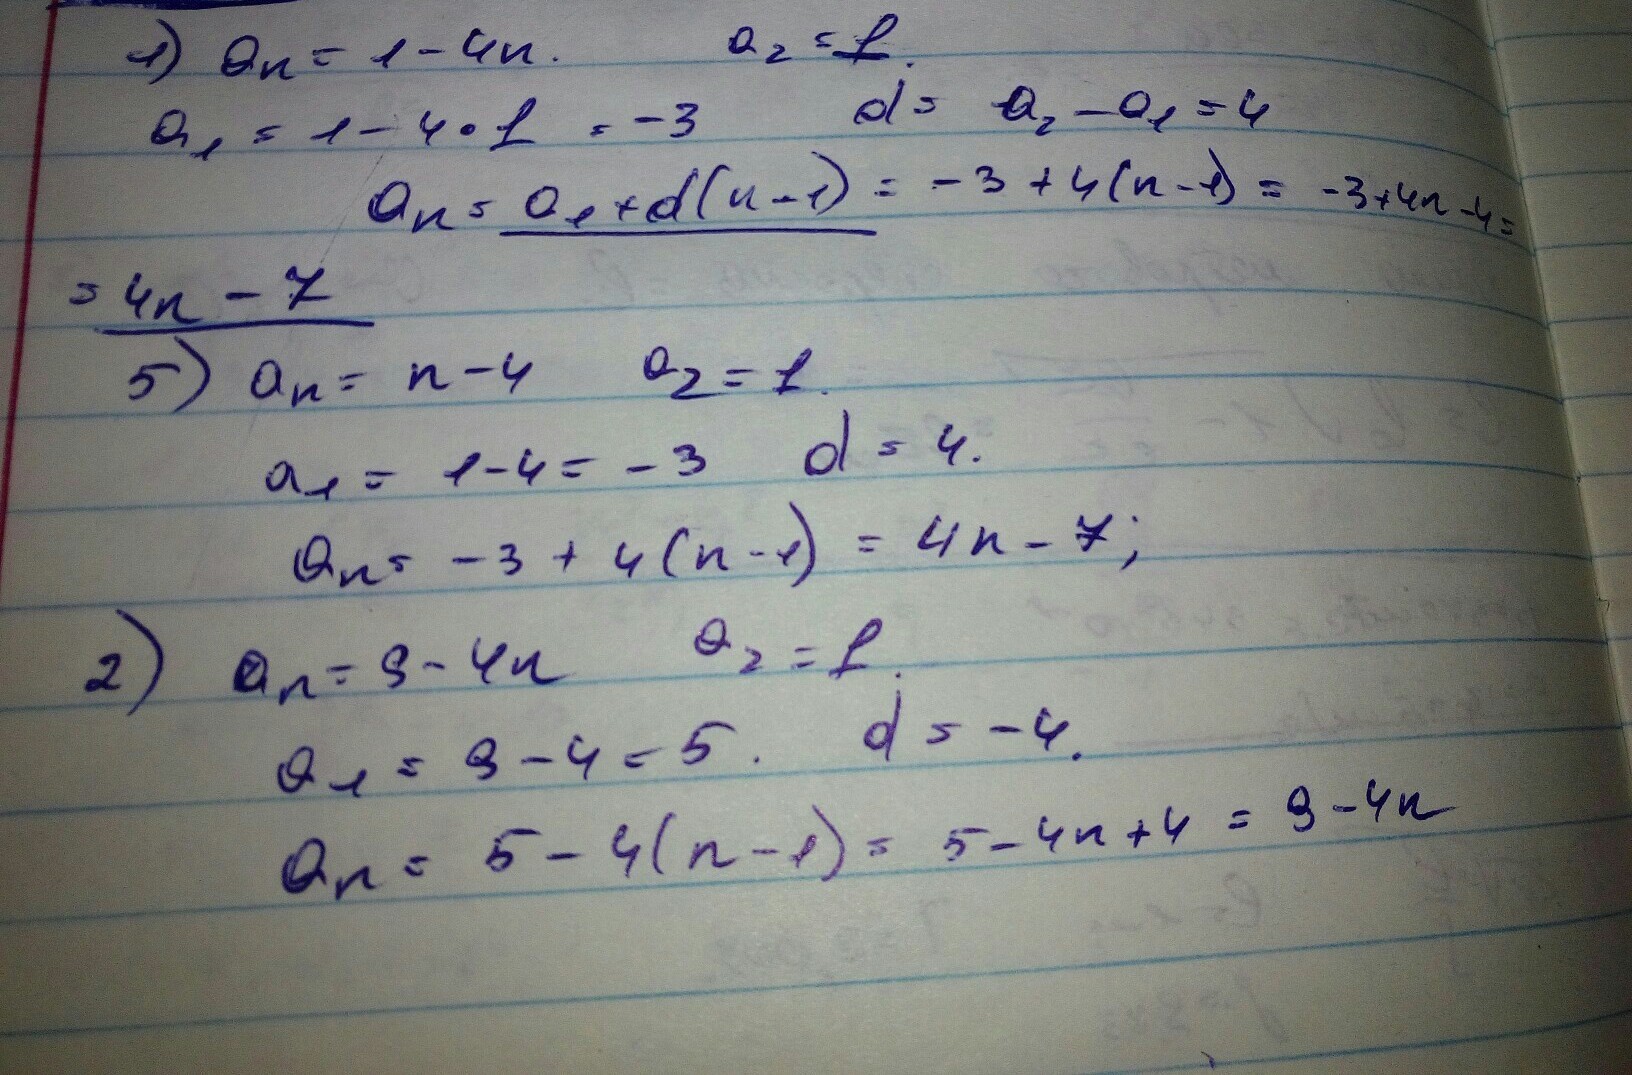 1) an = 1 - 4n. a2 = 1.
a1 = 1 - 4 • 1 = -3 d = a2 - a1 = 4
an = a1 + d(n-1) = -3 + 4(n-1) = -3+4n-4=
= 4n - 7
5) an = n - 4 a2 = 1.
a1 = 1 - 4 = -3 d = 4.
an = -3 + 4(n-1) = 4n - 7;
2) an = 9 - 4n a2 = 1.
a1 = 9 - 4 = 5. d = -4.
an = 5 - 4(n-1) = 5 - 4n + 4 = 9 - 4n